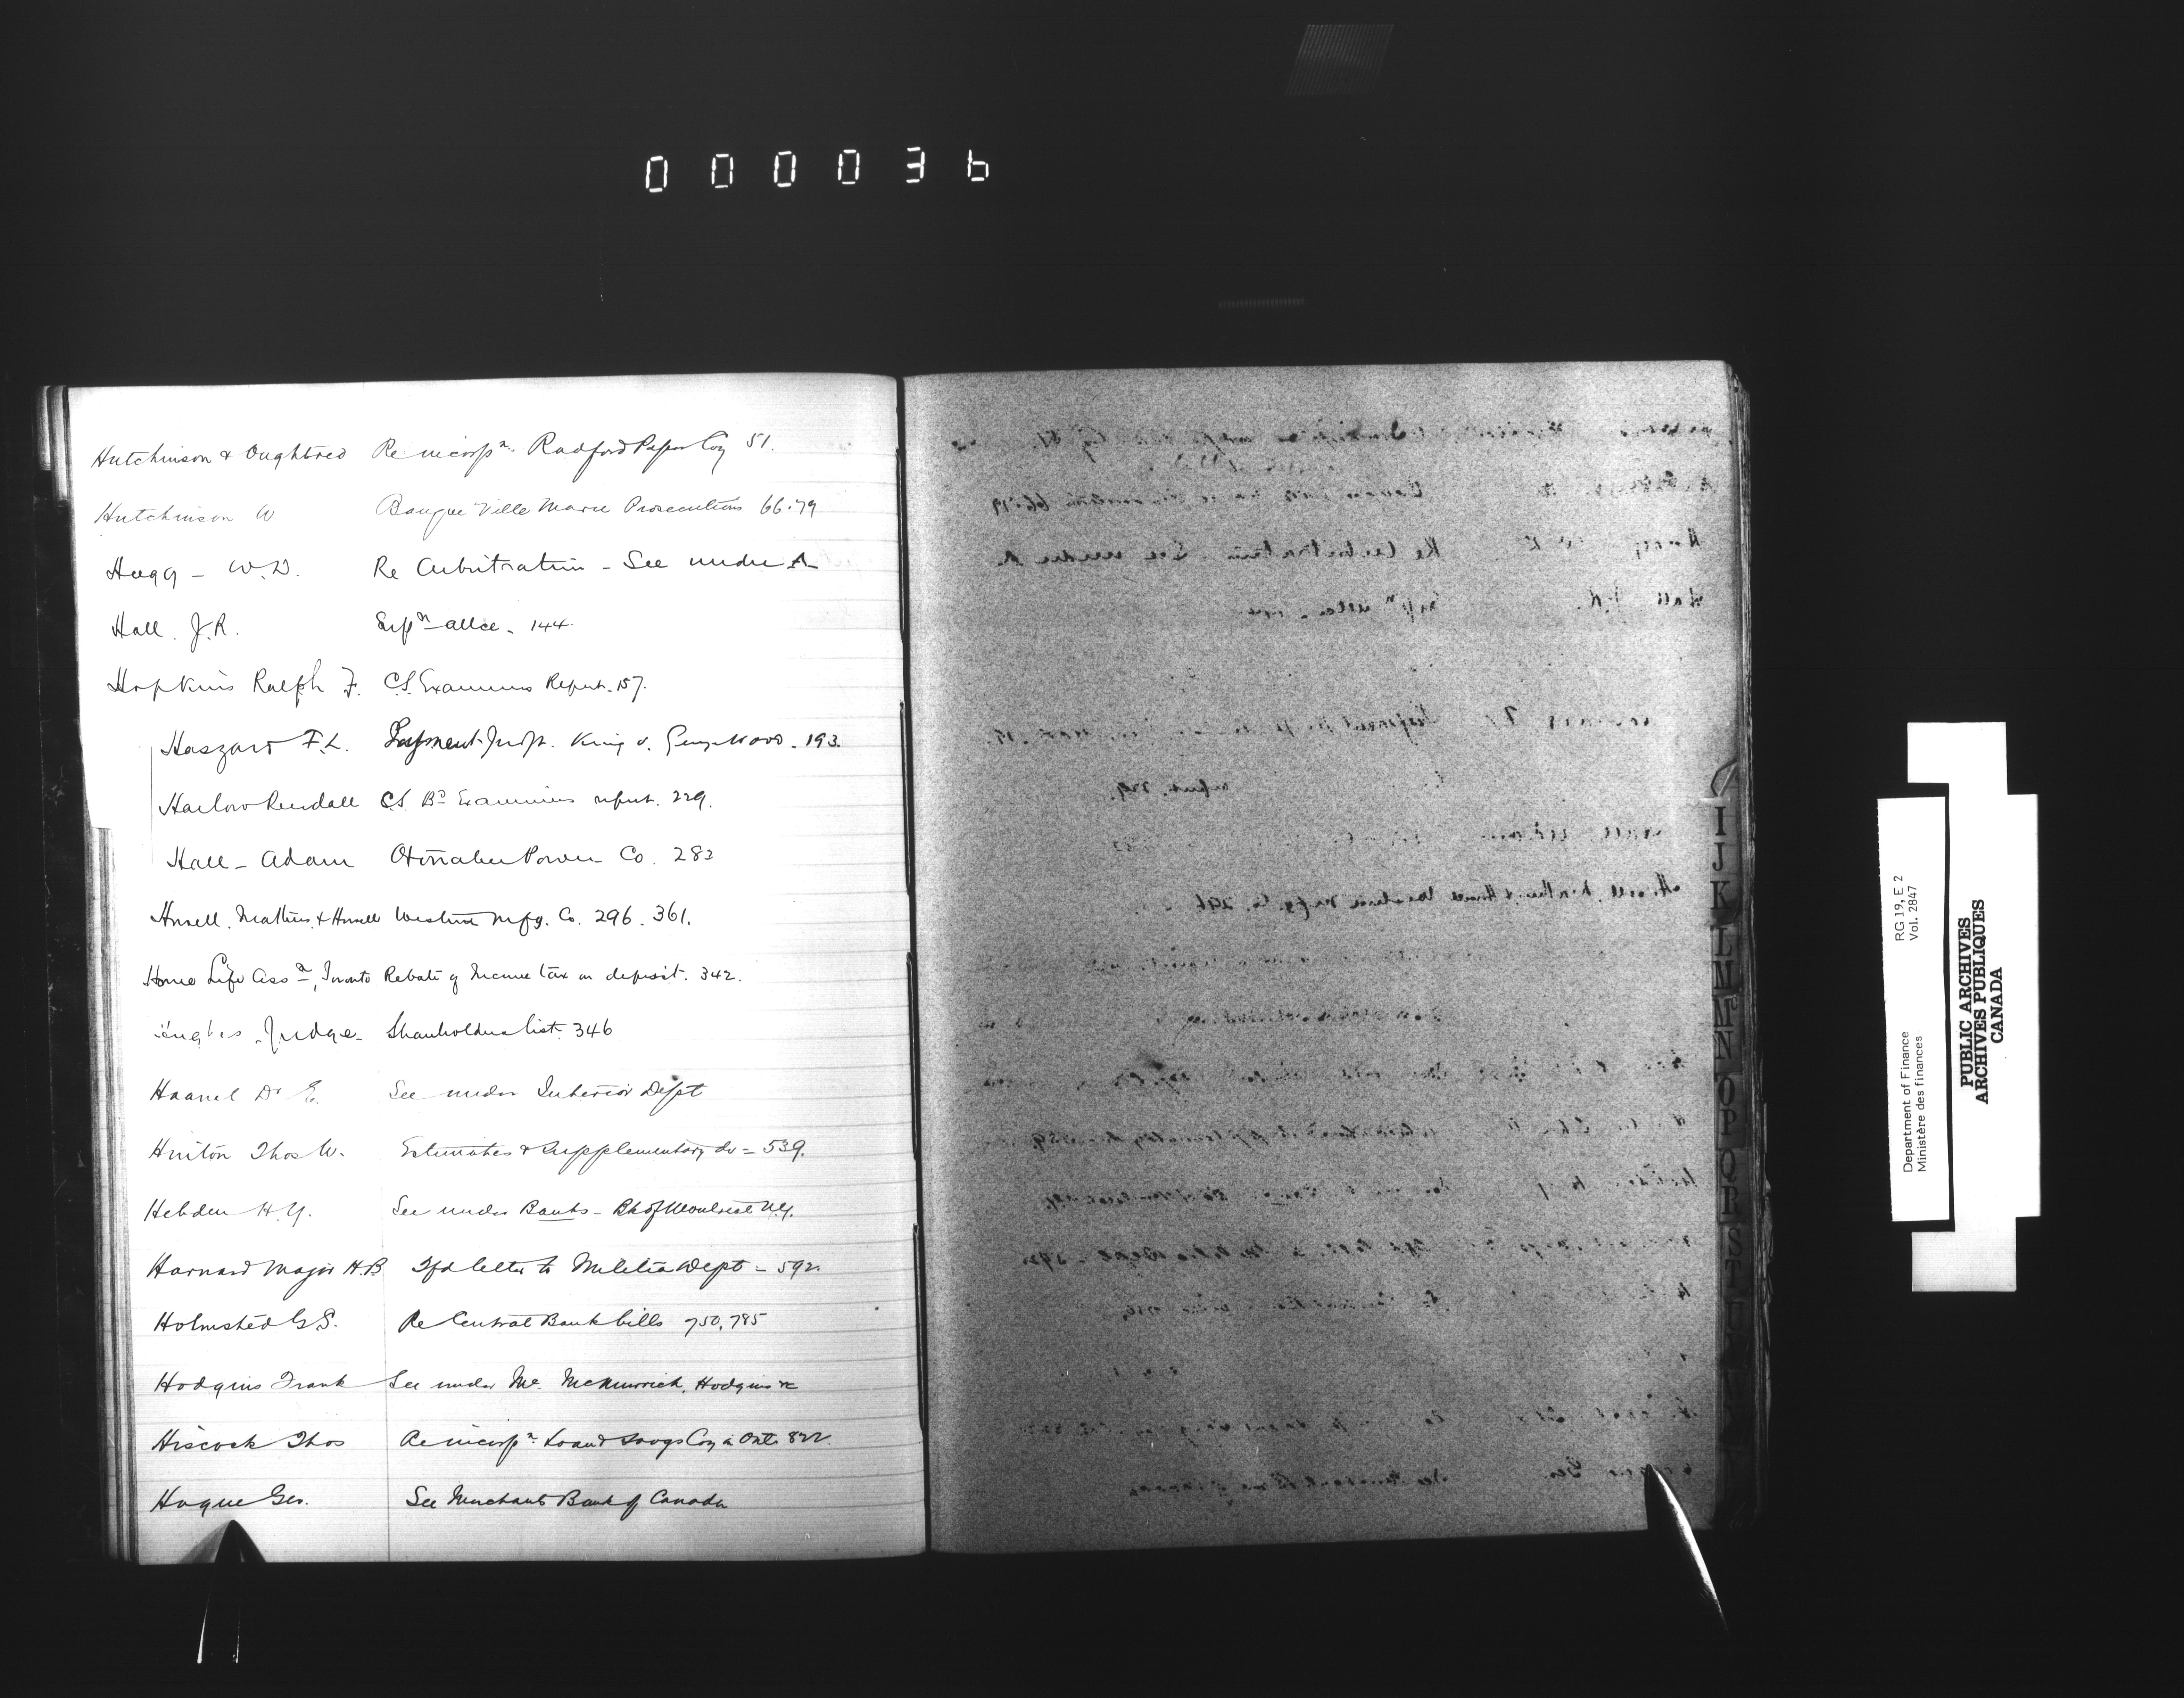 000036
Hutchinson & Oughtred Re incorpn. Radford Paper Coy 51.
Hutchinson W Banque Ville Marie Prosecutions 66.79
Hogg - W.D. Re Arbitration - See under A
Hall. J.R. Supn allce. 144.
Hopkins Ralph F. C.S. Examiners Report. 157.
Haszard F.L. Judgt. King v. 193.
Harlow Rendall C.S. Bd Examiners report. 229.
Hall - Adam Otonabee Power Co. 283
Howell, Mathers, & Howell Western Mfg. Co. 296. 361.
Home Life Assn, Toronto Rebate of Income tax on deposit. 342.
Judge - Shareholders list. 346
Haanel Dr E. See under Interior Dept
Hinton Thos W. Estimates & Supplementary do - 539.
Hebden H.Y. See under Banks - Bk of Montreal N.Y.
Major H.B. letter to Militia Dept - 592.
Holmsted G.S. Re Central Bank bills 750, 785
Hodgins Frank See under Mc. McMurrich, Hodgins &c
Hiscock Thos Re incorpn. Loan & Savgs Coy in Ont. 822.
Hague Geo. See Merchants Bank of Canada
I
J
K
L
M
Mc
N
O
P
Q
R
S
T
Department of Finance RG 19, E 2
Ministère des finances Vol. 2847
PUBLIC ARCHIVES
ARCHIVES PUBLIQUES
CANADA